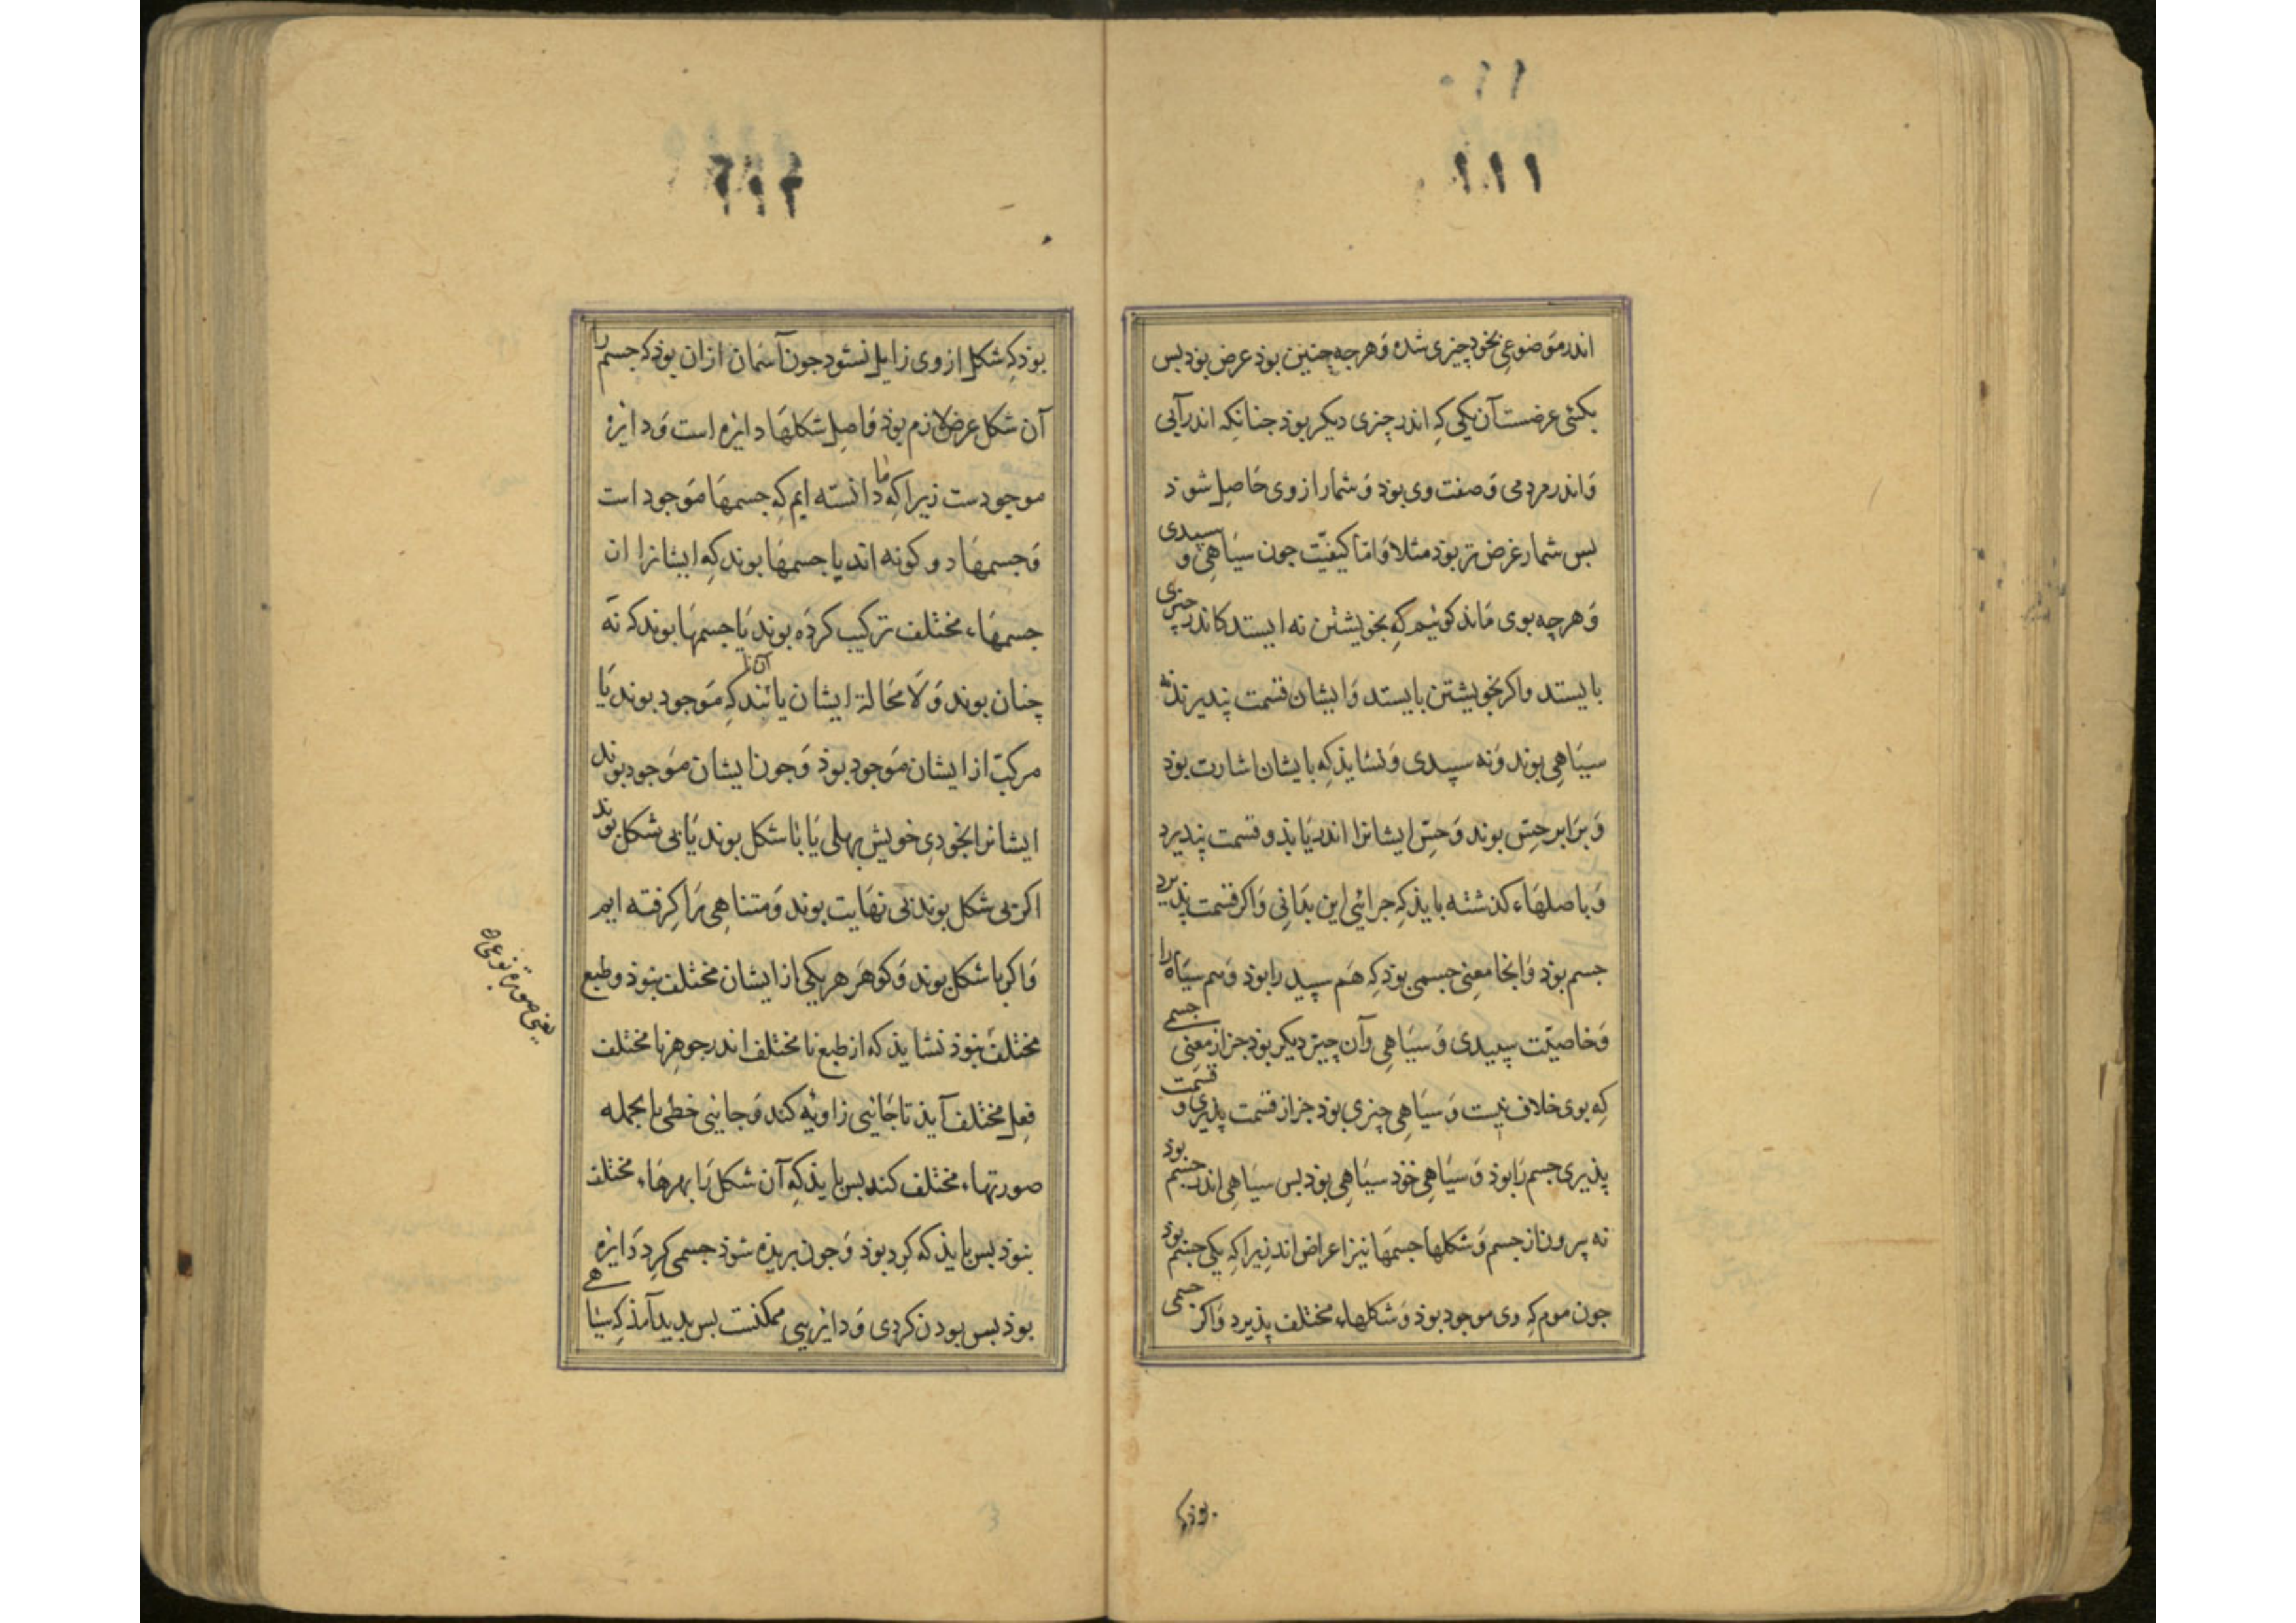 ۱۱۱
اندر موضوعی بخود چیزی شده وهرچه چنین بوذ عرض بوذ بس
یکئی عرضست آن یکی کِه اندر چیزی دیکر بوذ جنانکه اندر آبی
وَاندر مردمی وَ صفت وی بوذ وَ شمار از وی حَاصِل شوذ
بس شمار عَرَض تر بوذ مثلا وَ امّا کیفیّت جون سیَاهِی و سپیدی
وَ هرچه بوی مَاند کوئیم کِه بخویشتن نه ایستد کاندر چیزی
بایستد و اکر بخویشتن بایستد وَ ایشان قسمت پذیرند نه
سیَاهِی بوند وَ نه سپیدی وَ نشایذ کِه بایشان اشارت بوذ
وَ برَابر حِسّ بوند وَ حِسّ ایشانرا اندر یَابذ و قسمت پذیرد
وَ باصلهَاء کذشته بایذ کِه جرائی این بدَانِی وَ اکر قسمت پذیرد
جسم بوذ وَ انجا معنِی جسمی بوذ کِه هَم سپید را بوذ وَ هم سیَاه را
وَ خاصیّت سپیدی وَ سیَاهِی وآن چیز دیکر بوذ جز از معنِی جسمی
کِه بوی خلاف نیست وَ سیَاهِی چیزی بوذ جز از قسمت پذیری و قسمت
پذیری جسم رَا بوذ وَ سیَاهِی خوذ سیَاهِی بوذ بس سیَاهِی اندر جسم بوذ
نه بیرون از جسم وَ شکلها جسمهَا نیز اعراض اند زیرا کِه یکی جسم بوذ
جون موم کِه وی موجود بوذ وَ شکلهاء مختلف پذیرد وَاکر جسمی
بوذ
بوذ کِه شکل از وی زایل نشود جون آسمان ازان بوذ که جسم را
آن شکل عرض لازم بوذ وَ اصِل شکلهَا دایره است وَ دایره
موجودست زیرا کِه ما دانسته ایم کِه جسمهَا مَوجود است
وَجسمهَا دو کونه اند یا جسمهَا بوند کِه ایشانرا ان
جسمهَاء مختلف ترکیب کردَه بوند یَا جسمهَا بوند که نَه
چنان بوند وَ لَا مَحَالة ایشان یا آنانند کِه مَوجود بوند یَا
مرکبّ از ایشان مَوجود بوذ وَ جون ایشان مَوجود بوند
ایشانرا بخودیِ خویش بهلی یَا بَا شکل بوند یَا بی شکل بوند
اکر بی شکل بوند بی نهَایت بوند وَ متناهِی رَا کِرفته ایم
وَ اکر با شکل بوند وَ کوهَر هر یکی از ایشان مختلف نبوذ و طبع
مختلف نبوذ نشایذ که از طبع نا مختلف اندر جوهرِ نا مختلف
فِعلِ مختلف آیذ تا جَانیی زاویَه کند وَ جانیی خطی با بجمله
صورتهاء مختلف کند بس بایذ کِه آن شکل رَا بهرهَاء مختلف
نبوذ بس بایذ که کِرد بوذ وَ جون بریذه شوذ جسمی کِرد دَایره
بوذ بس بودن کردی وَ دایریی ممکنست بس بدید آمذ کِه سیَاهے
یعنی صورة نوعی